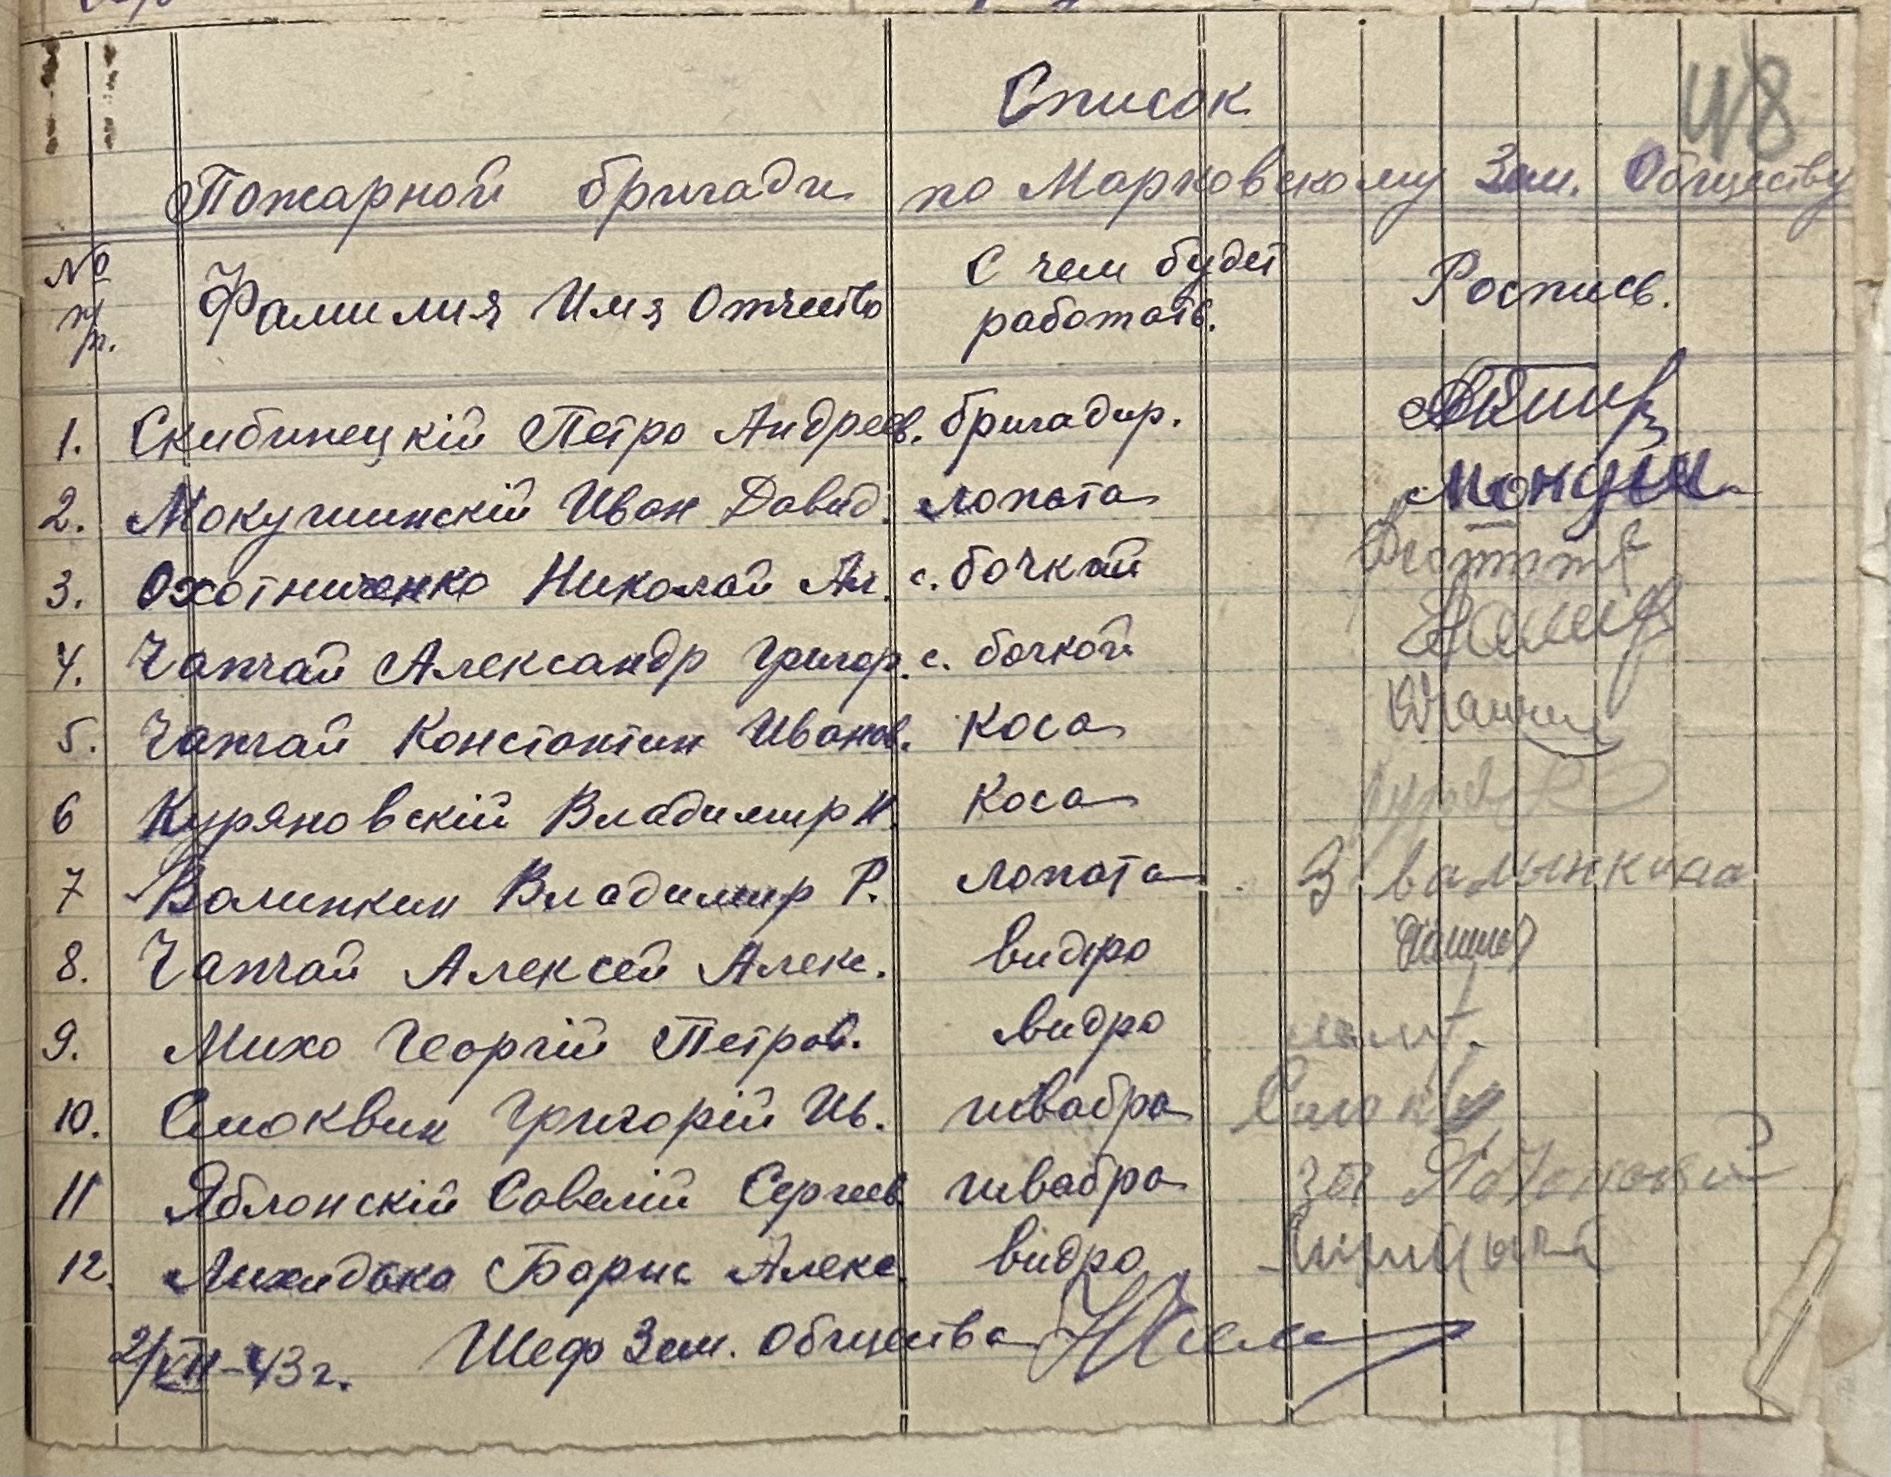 48
Список
Пожарной бригади по Марковскому Зем. Обществу
№ п/п. Фамилия Имя Отчество С чем будет работать. Роспись.
1. Скибинецкій Петро Андреев. бригадир.
2. Мокушинскій Иван Давид. лопата
3. Охотниченко Николай Ал. с. бочкой
4. Чапчай Александр Григор. с. бочкой
5. Чапчай Константин Иванов. Коса
6 Куряновскій Владимир Н. Коса
7 Валинкин Владимир Р. лопата З валынкина
8. Чапчай Алексей Алекс. видро
9. Михо Георгій Петров. видро
10. Смоквин Григорій Ив. швабра Смокв
11 Яблонскій Савелій Сергеев швабра за Яблонский
12. Борис Алекс. відро
2/XII-43 г. Шеф Зем. Общества